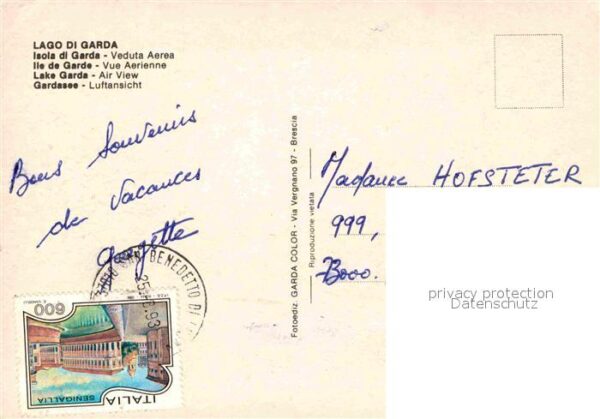 LAGO DI GARDA
Isola di Garda - Veduta Aerea
Ile de Garde - Vue Aerienne
Lake Garda - Air View
Gardasee - Luftansicht
Bons Souvenirs
de Vacances
Georgette
Fotoediz. GARDA COLOR - Via Vergnano 97 - Brescia
Riproduzione vietata
Madame HOFSTETER
999,
privacy protection
Datenschutz
BENEDETTO DI
93
600
ITALIA
SENIGALLIA